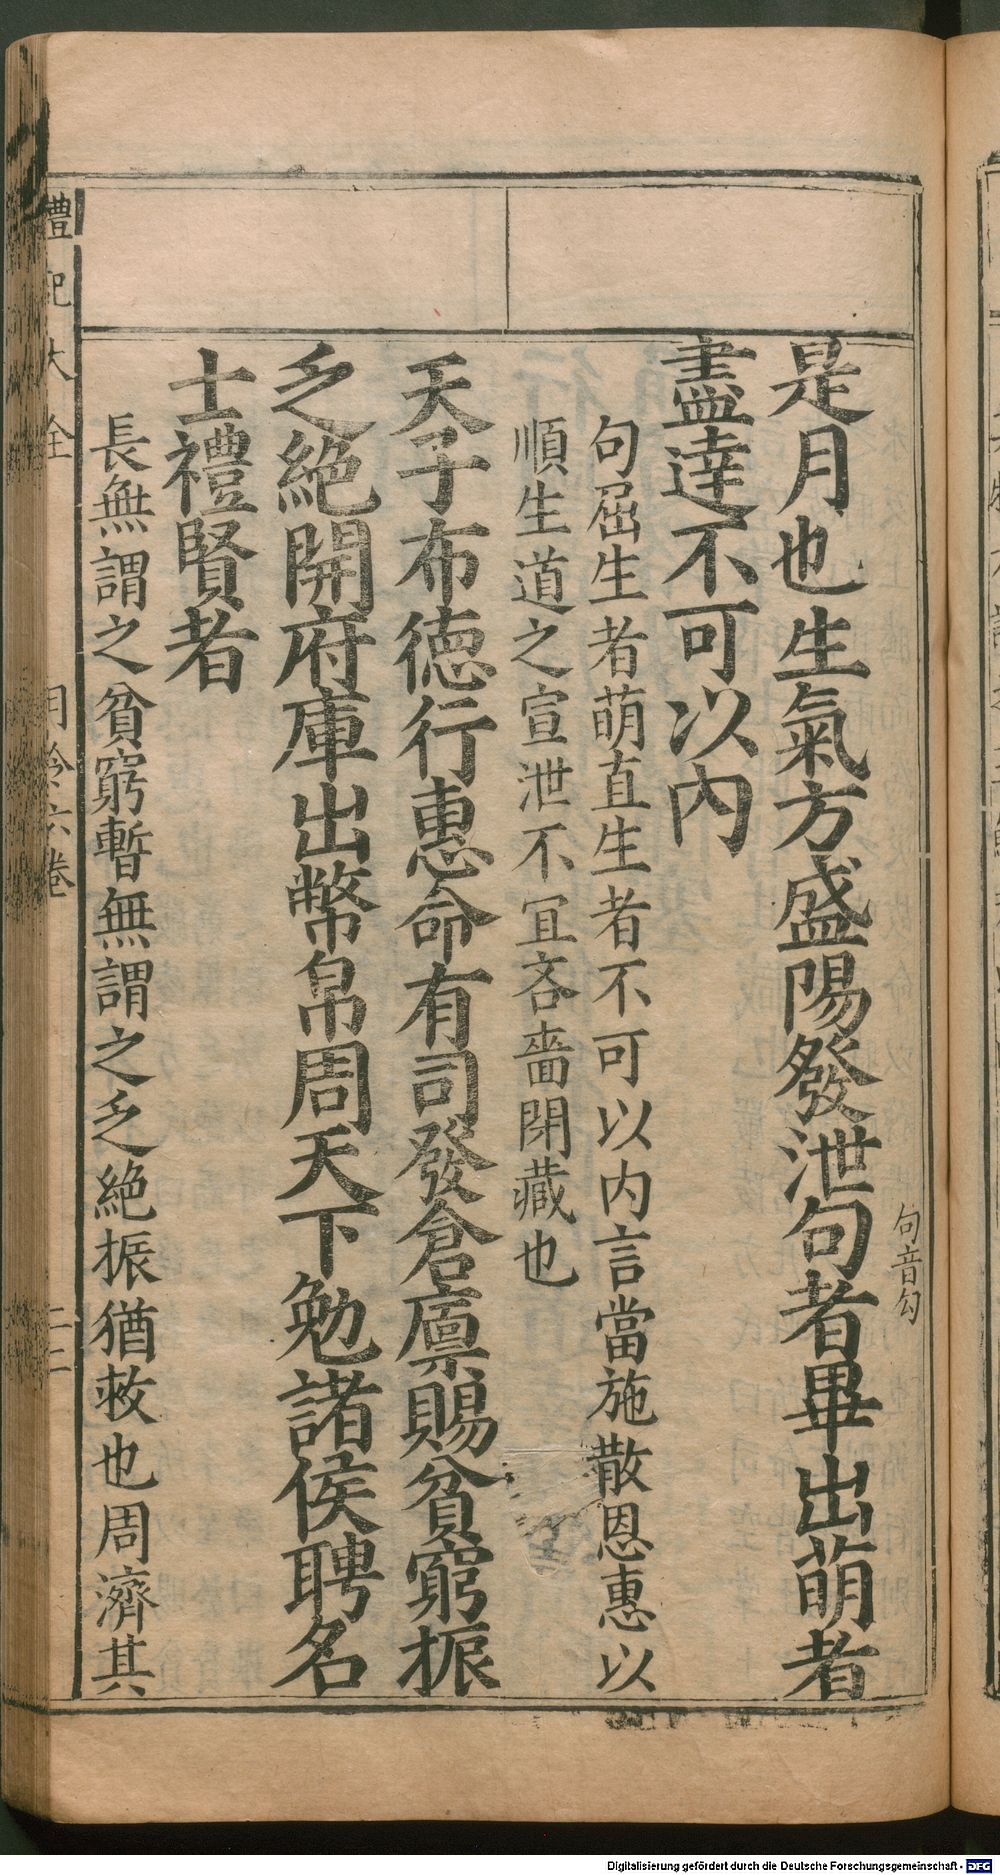 是月也生氣方盛陽發泄句者畢出萌者
句音勾
盡達不可以內
句屈生者萌直生者不可以内言當施散恩惠以
順生道之宣泄不宜吝嗇閉藏也
天子布德行惠命有司發倉廩賜貧窮振
乏絶開府庫出幣帛周天下勉諸侯聘名
士禮賢者
長無謂之貧窮暫無謂之乏絶振猶救也周濟其
禮記大全
月令六卷
二十二
Digitalisierung gefördert durch die Deutsche Forschungsgemeinschaft - DFG